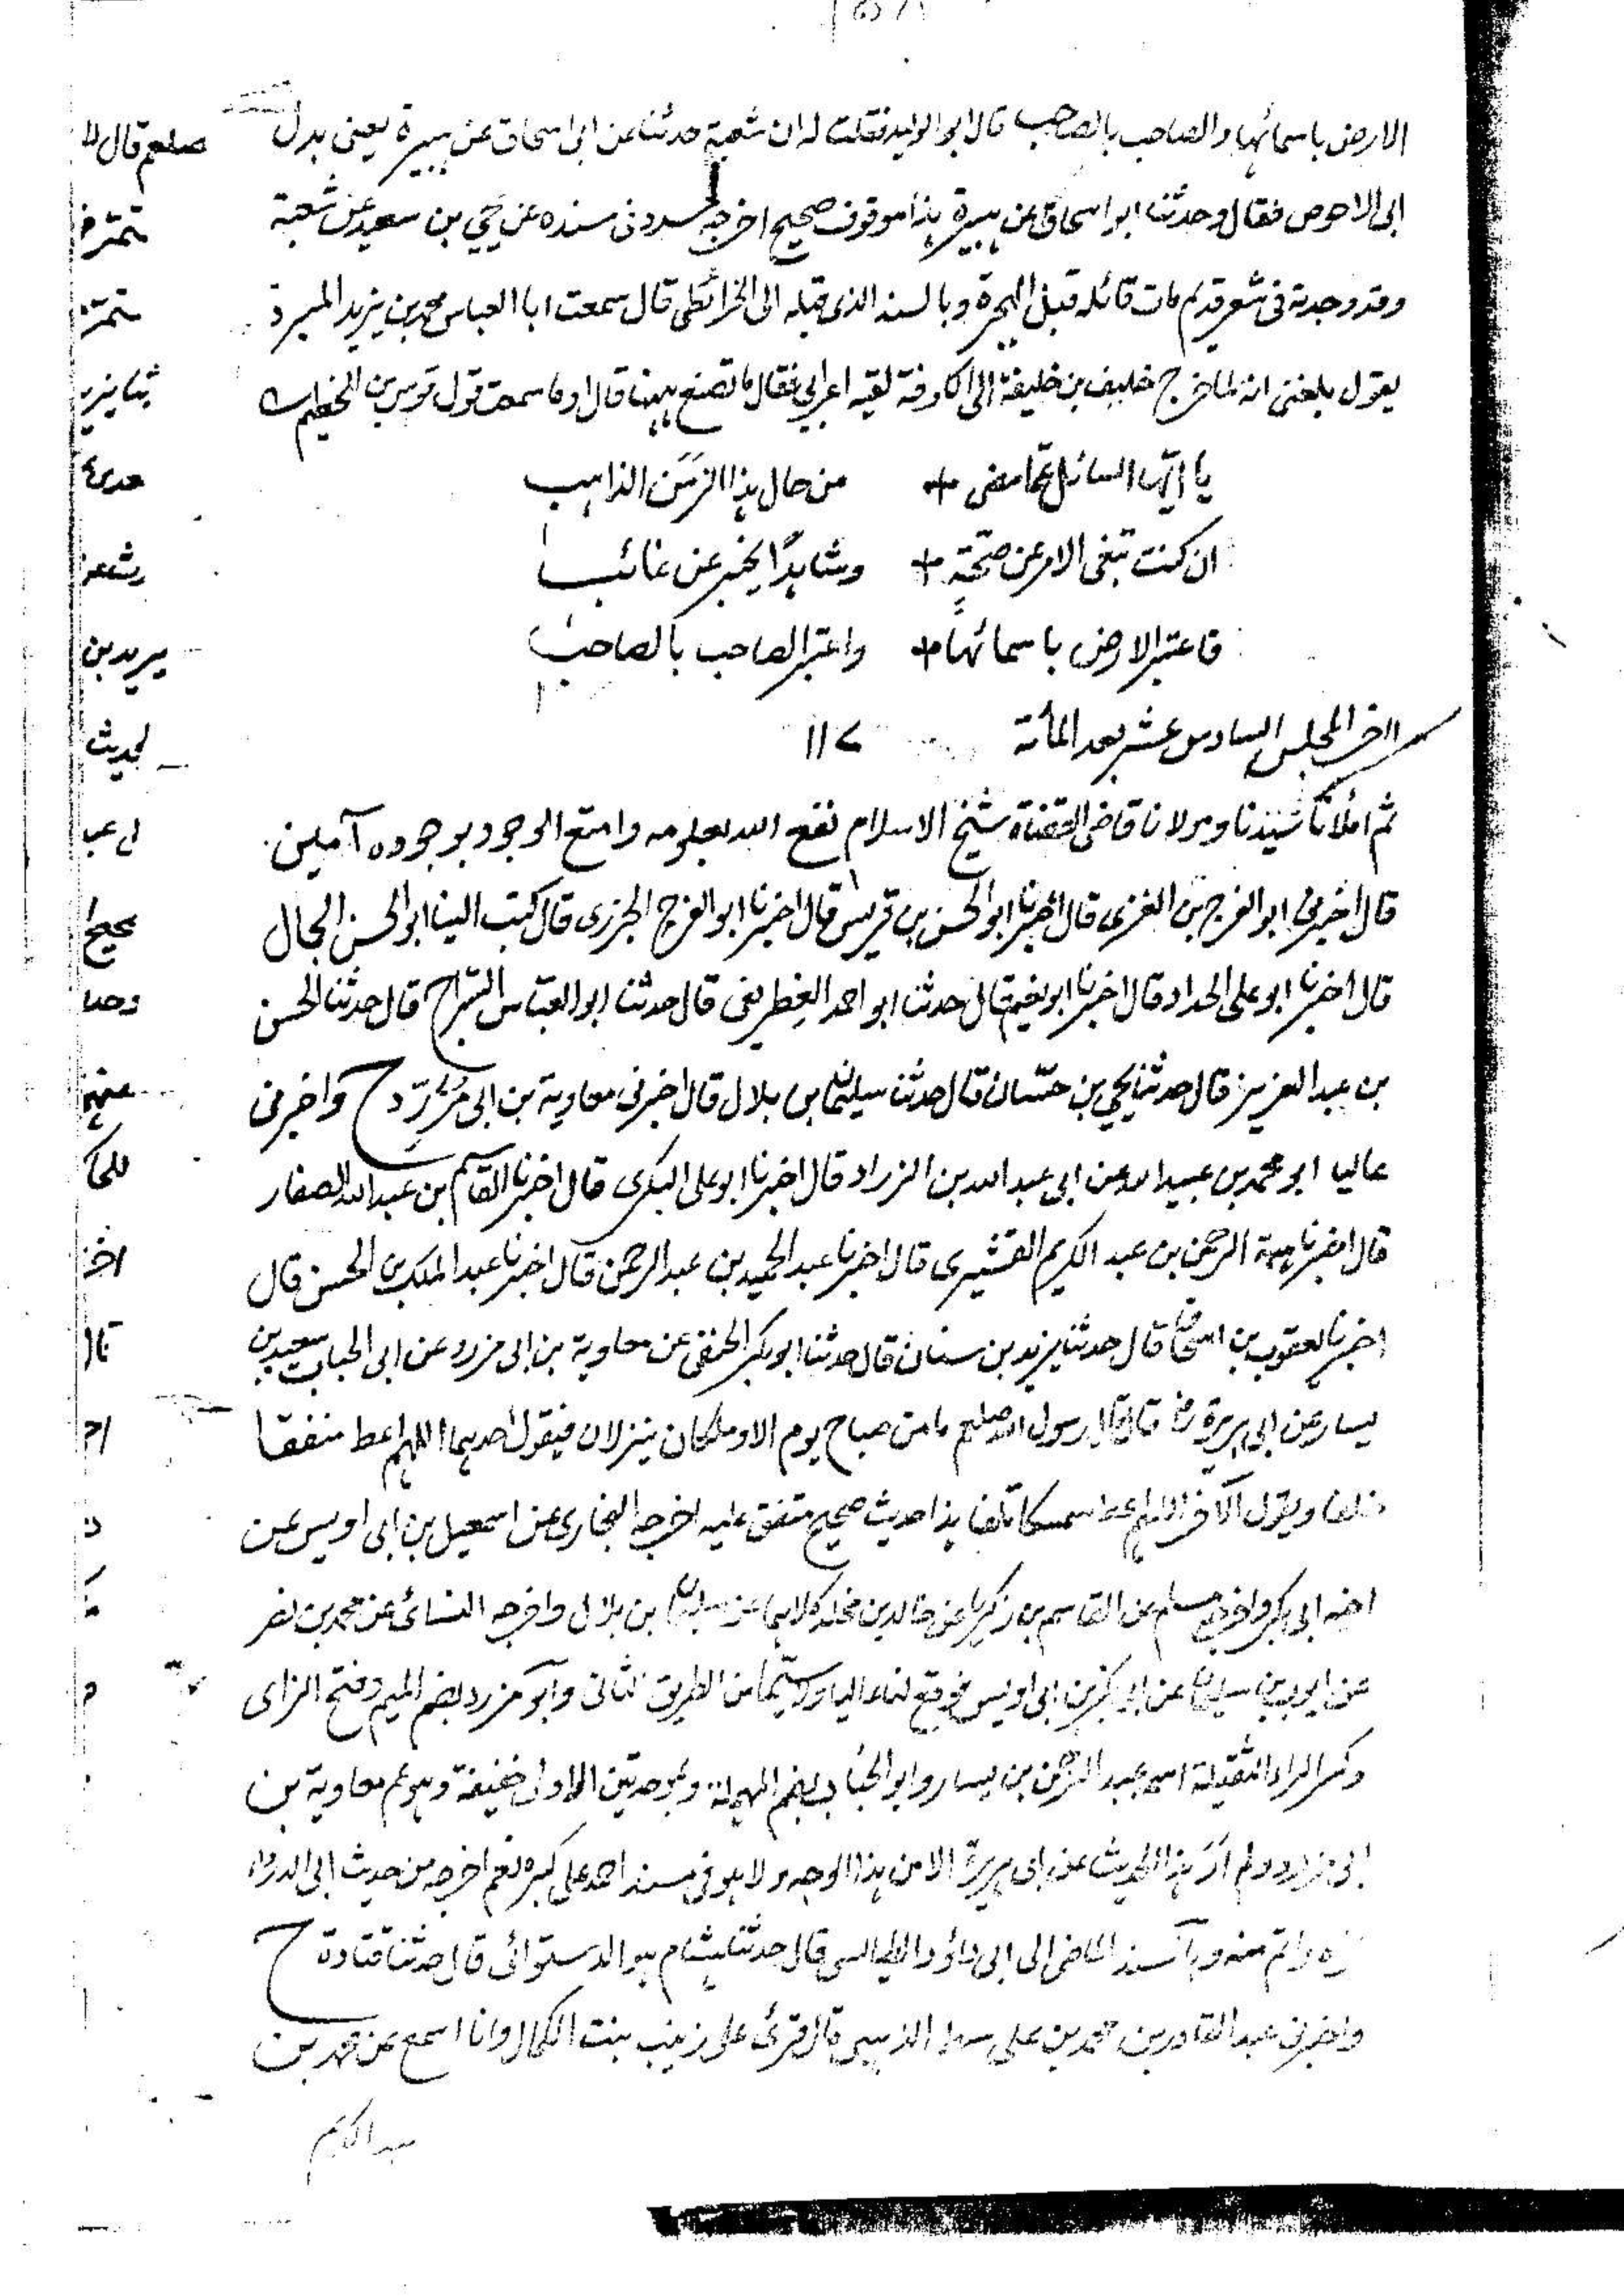 الارض باسمائها والصاحب بالصاحب قال ابو الوليد فقلت له ان شعبة حدثنا عن ابى اسحاق عن هبيرة يعنى بدل
ابى الاحوص فقال وحدثنا ابو اسحاق عن هبيرة هذا موقوف صحيح اخرجه مسدد فى مسنده عن يحيى بن سعيد عن شعبة
وقد وجدته فى شعر قديم مات قائله قبل الهجرة وبالسند الذى قبله الى الخرائطى قال سمعت ابا العباس محمد بن يزيد المبرد
يقول بلغنى انه لما خرج خليف بن خليفة الى الكوفة لقيه اعرابى فقال ما تصنع ههنا قال اوما سمعت قول قيس بن الخطيم
يا ايها السائل عما مضى + من حال هذا الزمن الذاهب
ان كنت تبغى الامر عن صحة + وشاهدًا يخبر عن غائب
فاعتبر الارض باسمائها + واعتبر الصاحب بالصاحب
اخر المجلس السادس عشر بعد المائة ١١٧
ثم املانا سيدنا ومولانا قاضى القضاة شيخ الاسلام نفع الله بعلومه وامتع الوجود بوجوده آمين
قال اخبرنى ابو الفرج بن الغزى قال اخبرنا ابو الحسن بن قريش قال اخبرنا ابو الفرج الجزرى قال كتب الينا ابو الحسن الجمال
قال اخبرنا ابو على الحداد قال اخبرنا ابو نعيم قال حدثنا ابو احمد الغطريفى قال حدثنا ابو العباس السراج قال حدثنا الحسن
بن عبد العزيز قال حدثنا يحيى بن حسان قال حدثنا سليمان بن بلال قال اخبرنى معاوية بن ابى مزرد ح واخبرنى
عاليا ابو محمد بن عبيد الله عن ابى عبد الله بن الزراد قال اخبرنا ابو على البكرى قال اخبرنا القاسم بن عبد الله الصفار
قال اخبرنا هبة الرحمن بن عبد الكريم القشيرى قال اخبرنا عبد الحميد بن عبد الرحمن قال اخبرنا عبد الملك بن الحسن قال
اخبرنا يعقوب بن اسحاق قال حدثنا يزيد بن سنان قال حدثنا ابو بكر الحنفى عن معاوية بن ابى مزرد عن ابى الحباب سعيد بن
يسار عن ابى هريرة رض قال قال رسول الله صلعم ما من صباح يوم الا وملكان ينزلان فيقول احدهما اللهم اعط منفقا
خلفا ويقول الآخر اللهم اعط ممسكا تلفا هذا حديث صحيح متفق عليه اخرجه البخارى عن اسمعيل بن ابى اويس عن
اخيه ابى بكر واخرجه مسلم عن القاسم بن زكريا عن خالد بن مخلد كلاهما عن سليمان بن بلال واخرجه النسائى عن محمد بن نصر
عن ايوب بن سليمان عن ابى بكر بن ابى اويس فوقع لنا عاليا ولا سيما من الطريق الثانى وآبو مزرد بضم الميم وفتح الزاى
وكسر الراء الثقيلة اسمه عبد الرحمن بن يسار وابو الحباب بضم المهملة وبموحدتين الاولى خفيفة وهو عم معاوية بن
ابى مزرد ولم ار هذا الحديث عن ابى هريرة الا من هذا الوجه ولا هو فى مسند احمد على كبره نعم اخرجه من حديث ابى الدرداء
واتم منه وبالسند الماضى الى ابى داؤد الطيالسى قال حدثنا هشام هو الدستوائى قال حدثنا قتادة ح
واخبرنى عبد القادر بن محمد بن على سبط الذهبى قال قرئ على زينب بنت الكمال وانا اسمع عن محمد بن
عبد الكريم
صلعم قال
يزيد بن
لحديث
صحيح